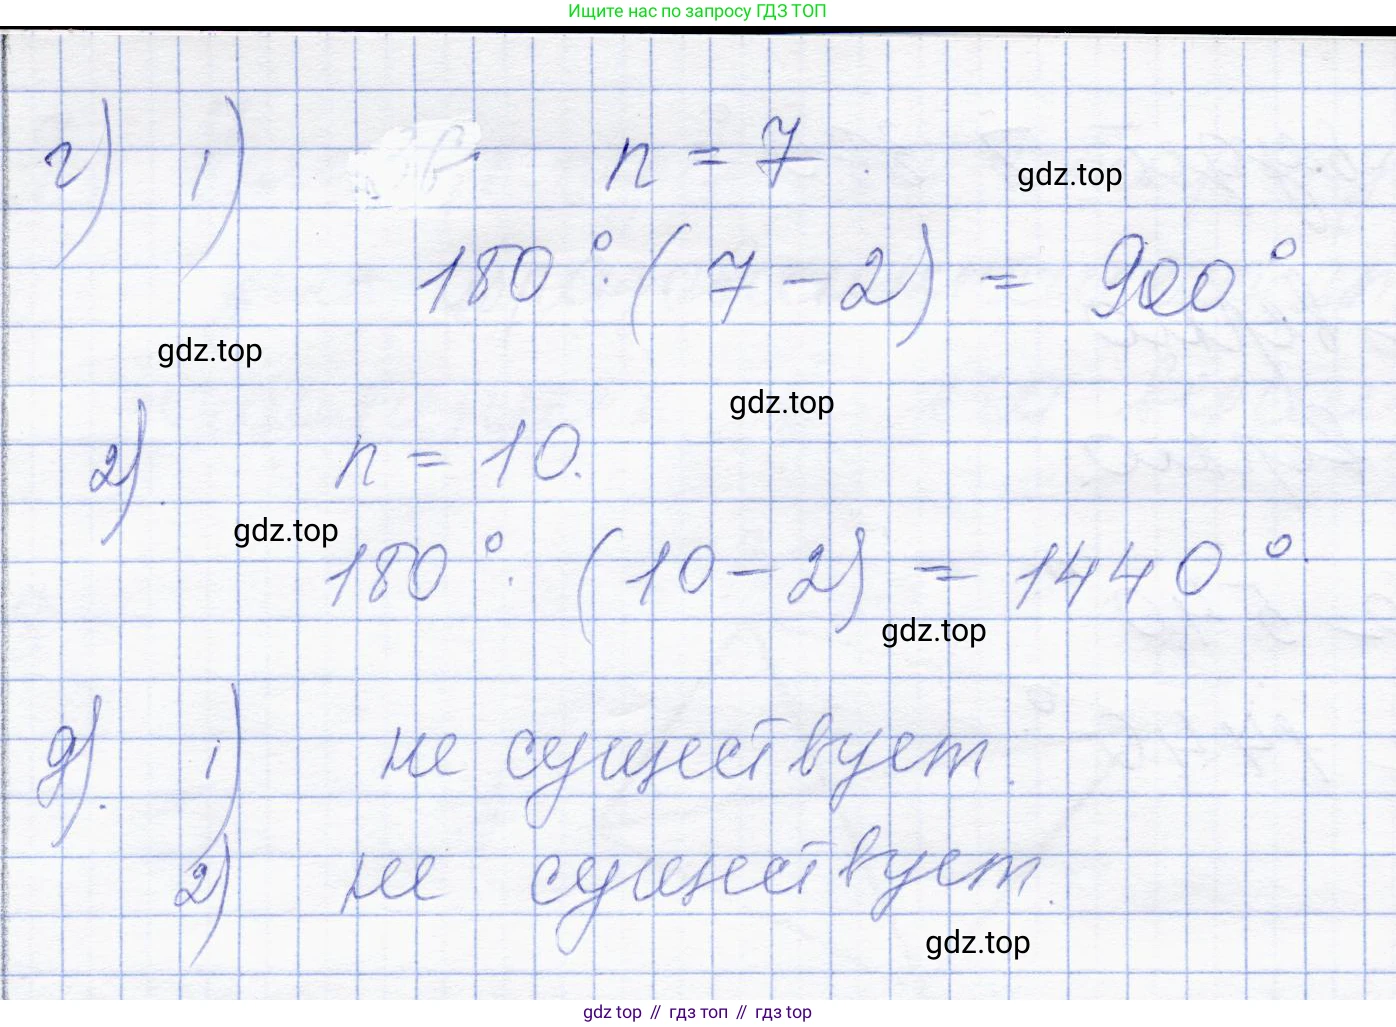 Ищите нас по запросу ГДЗ ТОП
г) 1) n = 7.
gdz.top
180° · (7 - 2) = 900°.
gdz.top
gdz.top
2). n = 10.
gdz.top
180° · (10 - 2) = 1440°.
gdz.top
д). 1) не существует.
2) не существует.
gdz.top
gdz top // гдз топ // гдз top